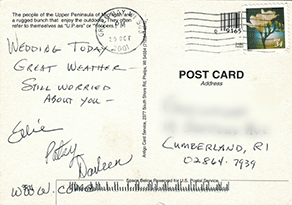 The people of the Upper Peninsula of Michigan are
a rugged bunch that enjoy the outdoors. They often
refer to themselves as "U.P.ers" or "Yoopers."
WEDDING TODAY
GREAT WEATHER -
STILL WORRIED
ABOUT YOU -
Patsy
Darleen
WOOW.CO
Avery Card Service, 2377 South Shore Rd, Phelps, WI 54554
PM
OCT
2001
34
POST CARD
Address
CUMBERLAND, RI
02864-7939
Space Below Reserved for U.S. Postal Service